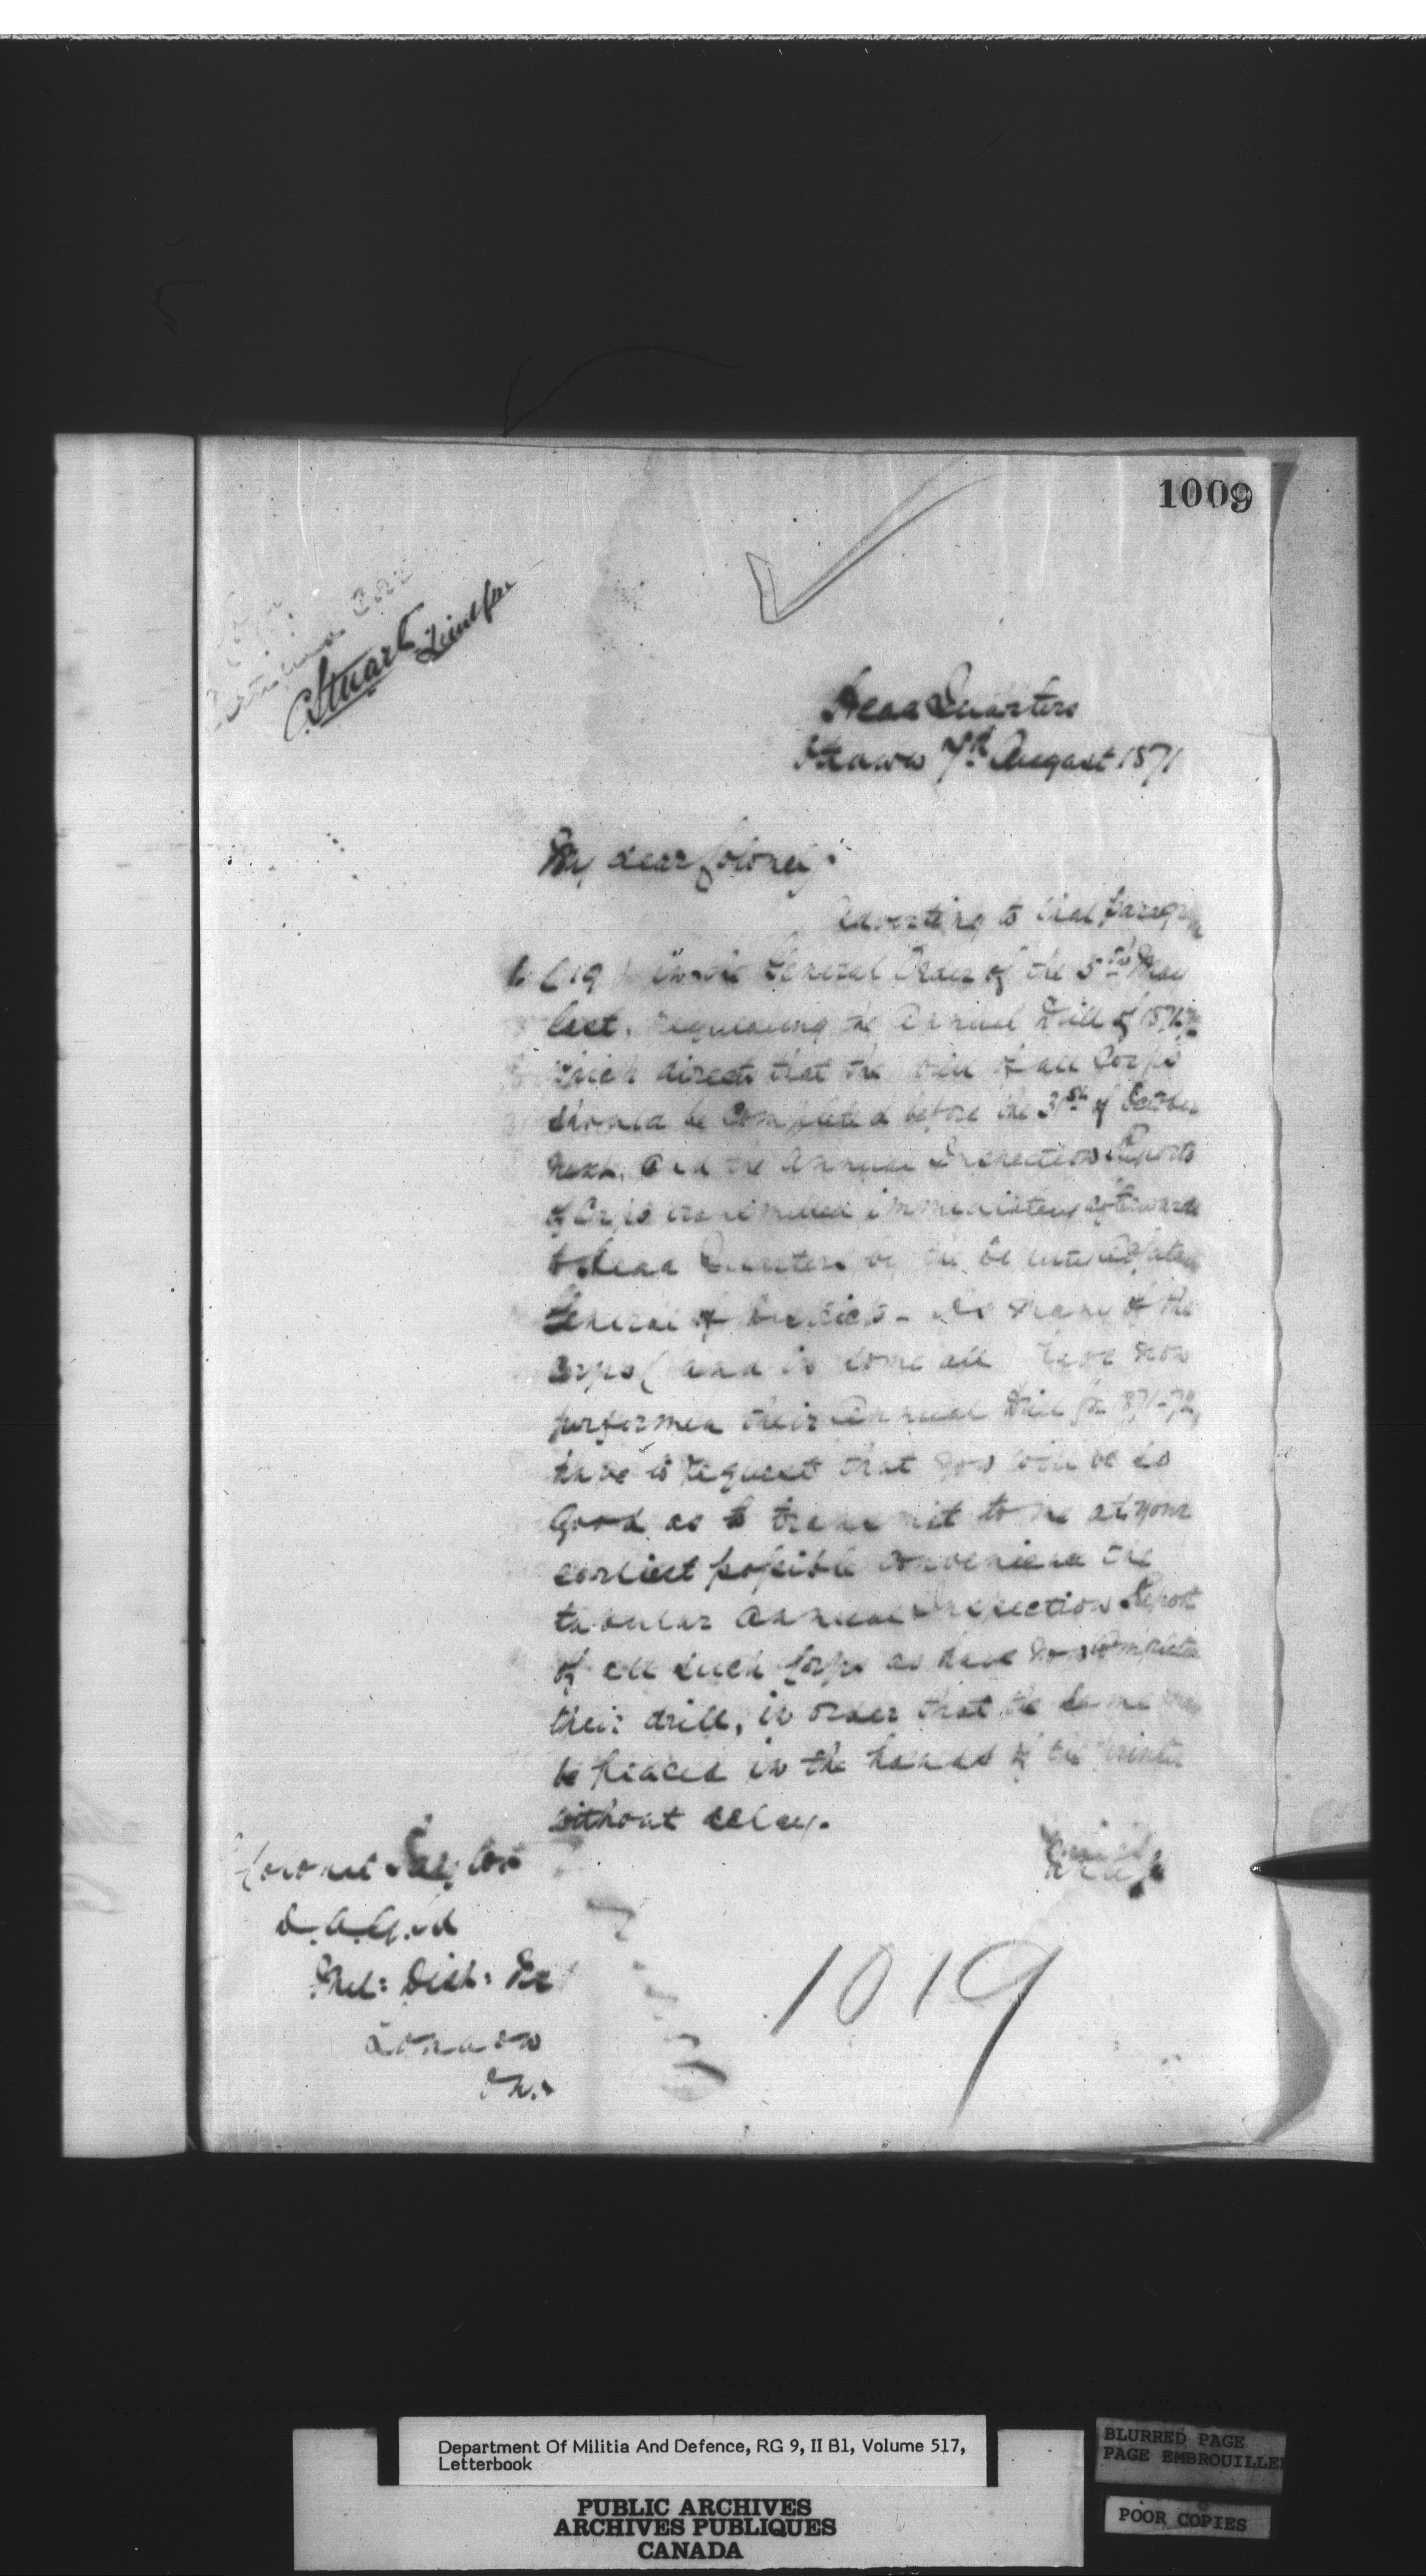 1009
Stuart
Head Quarters
Ottawa 7th August 1871
My dear Colonel,
Adverting to that paragraph
(19) in the General Order of the 5th May
last, regulating the Annual Drill of 1871-72
which directs that the drill of all Corps
should be completed before the 31st of October
next, and the Annual Inspection Reports
of Corps transmitted immediately afterwards
to Head Quarters by the Deputy Adjutant
General of Districts - As many of the
Corps (and in some all have now
performed their Annual Drill for 1871-72,
have to request that you will be so
good as to transmit to me at your
earliest possible convenience the
tabular Annual Inspection Report
of all such Corps as have now completed
their drill, in order that the same may
be placed in the hands of the printer
without delay.
Colonel Taylor
D.A.G.M
Mil: Dist:
London
Ont.
1019
Department Of Militia And Defence, RG 9, II B1, Volume 517,
Letterbook
PUBLIC ARCHIVES
ARCHIVES PUBLIQUES
CANADA
BLURRED PAGE
PAGE EMBROUILLEE
POOR COPIES